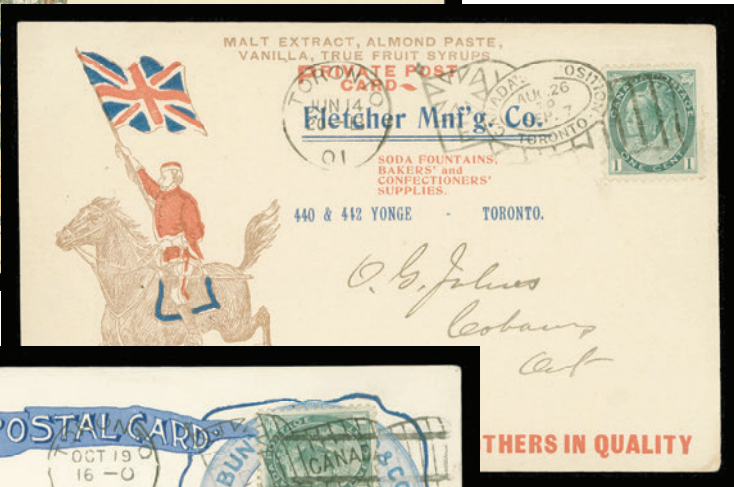 MALT EXTRACT, ALMOND PASTE,
VANILLA, TRUE FRUIT SYRUPS,
PRIVATE POST
CARD
TORONTO
JUN 14
01
CANADA'S EXPOSITION
AUG. 26
TO
SEP. 7
TORONTO
CANADA POSTAGE
1 ONE CENT 1
Fletcher Mnf'g. Co.
SODA FOUNTAINS,
BAKERS' and
CONFECTIONERS'
SUPPLIES.
440 & 442 YONGE - TORONTO.
O. G. Johns
Ont
THERS IN QUALITY
POSTAL CARD
OCT 19
16 - 0
BUN
& CO
CANAD